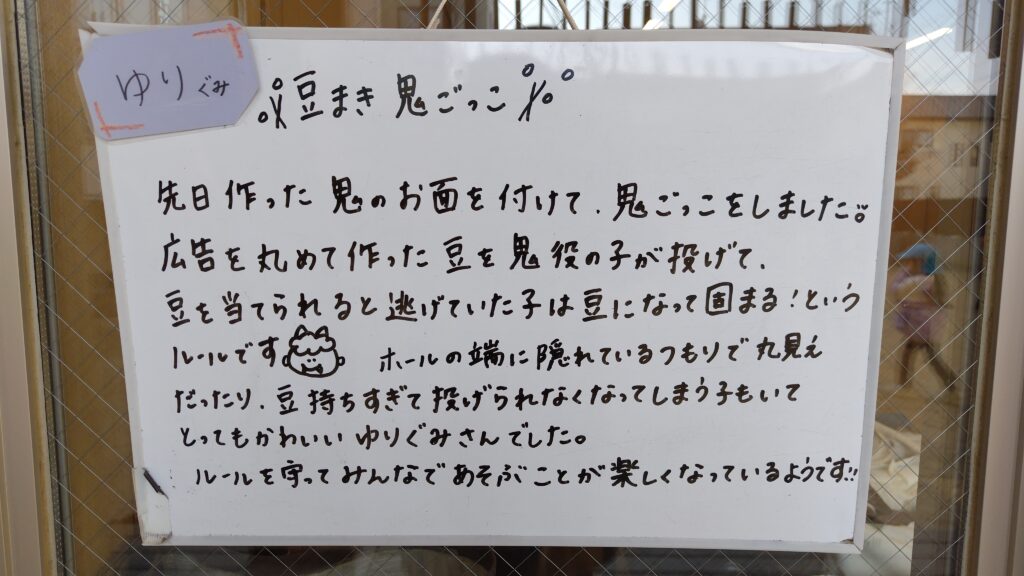 ゆりぐみ
豆まき鬼ごっこ
先日作った鬼のお面を付けて、鬼ごっこをしました。
広告を丸めて作った豆を鬼役の子が投げて、
豆を当てられると逃げていた子は豆になって固まる!という
ルールです ホールの端に隠れているつもりで丸見え
だったり、豆持ちすぎて投げられなくなってしまう子もいて
とってもかわいいゆりぐみさんでした。
ルールを守ってみんなであそぶことが楽しくなっているようです!!